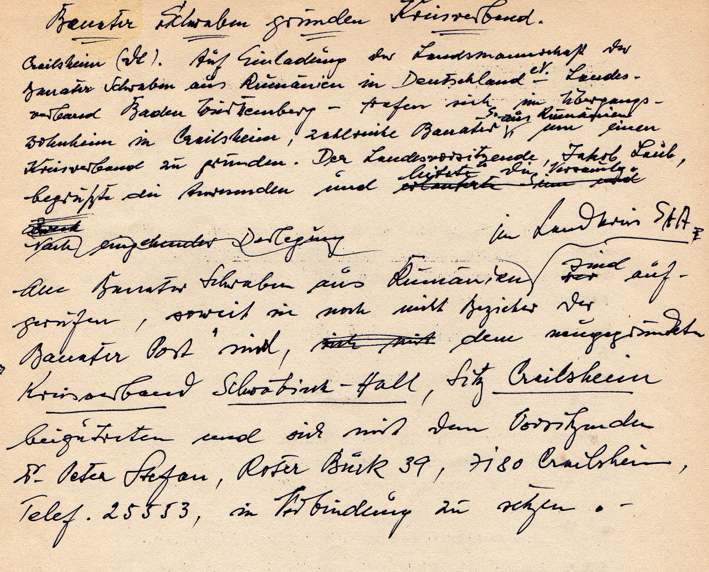 Banater Schwaben gründen Kreisverband.
Crailsheim (dl). Auf Einladung der Landsmannschaft der
Banater Schwaben aus Rumänien in Deutschland e.V. Landes-
verband Baden Württemberg – trafen sich im Übergangs-
wohnheim in Crailsheim, zahlreiche Banater S. aus Rumänien um einen
Kreisverband zu gründen. Der Landesvorsitzende, Jakob Laub,
begrüßte die Anwesenden und leitete die Versamlg. erläuterte Sinn und
Zweck
Nach eingehender Darlegung im Landkreis SHA
Alle Banater Schwaben aus Rumänien sind auf-
gerufen, soweit sie noch nicht Bezieher der
Banater Post" sind, dem neugegründeten
Kreisverband Schwäbisch-Hall, Sitz Crailsheim
beizutreten und sich mit dem Vorsitzenden
Peter Stefan, Roter Bürk 39, 7180 Crailsheim,
Telef. 25553, in Verbindung zu setzen. –